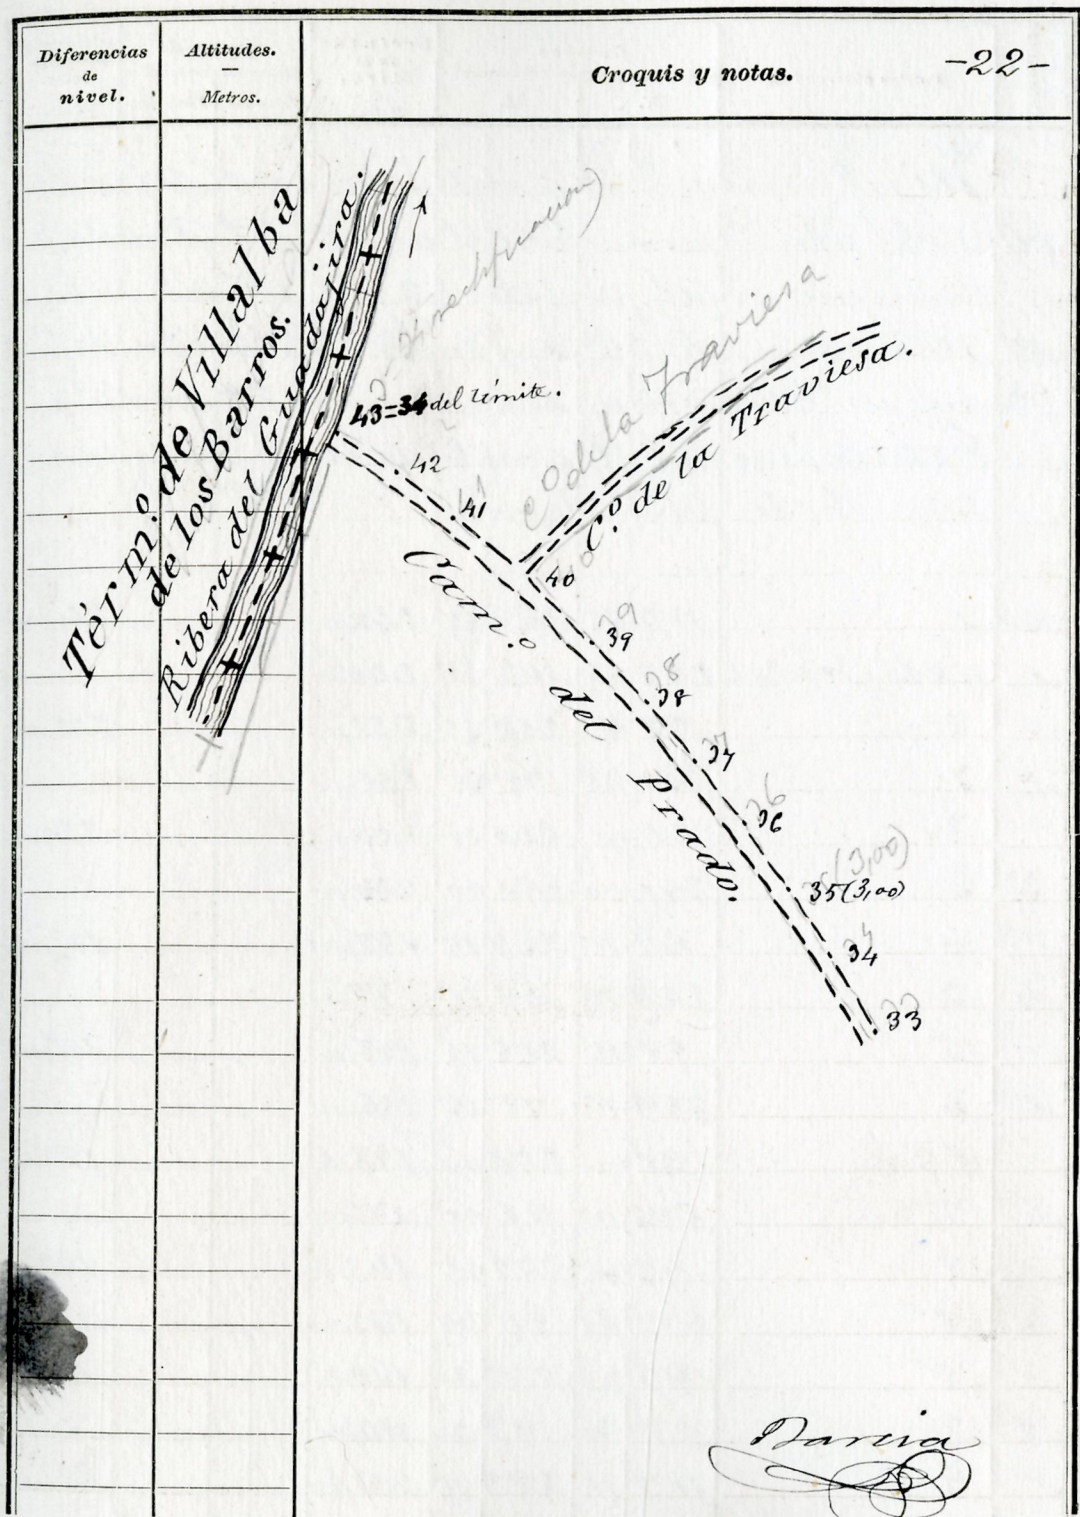 Diferencias
de
nivel.
Altitudes.
Metros.
Croquis y notas.
-22-
Térm.o de Villalba
de los Barros.
Ribera del Guadajira.
rectificacion)
43=34 del límite.
42
41
Co de la Traviesa
C.o de la Traviesa.
40
39
39
38
38
37
37
36
36
35 (3,00)
(3,00)
34
34
33
33
Cam.o del prado.